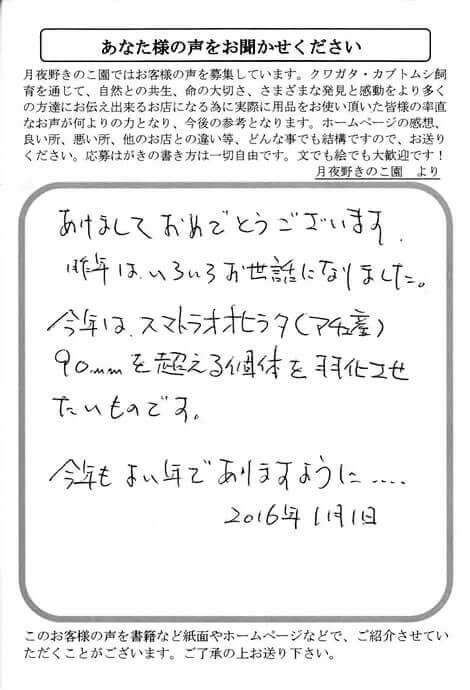 あなた様の声をお聞かせください
月夜野きのこ園ではお客様の声を募集しています。クワガタ・カブトムシ飼
育を通じて、自然との共生、命の大切さ、さまざまな発見と感動をより多く
の方達にお伝え出来るお店になる為に実際に用品をお使い頂いた皆様の率直
なお声が何よりの力となり、今後の参考となります。ホームページの感想、
良い所、悪い所、他のお店との違い等、どんな事でも結構ですので、お送り
ください。応募はがきの書き方は一切自由です。文でも絵でも大歓迎です！
月夜野きのこ園　より
あけましておめでとうございます.
昨年は、いろいろお世話になりました。
今年は、スマトラオオヒラタ(アチェ産)
90mmを超える個体を羽化させ
たいものです。
今年もよい年でありますように....
2016年1月1日
このお客様の声を書籍など紙面やホームページなどで、ご紹介させてい
ただくことがございます。ご了承の上お送り下さい。